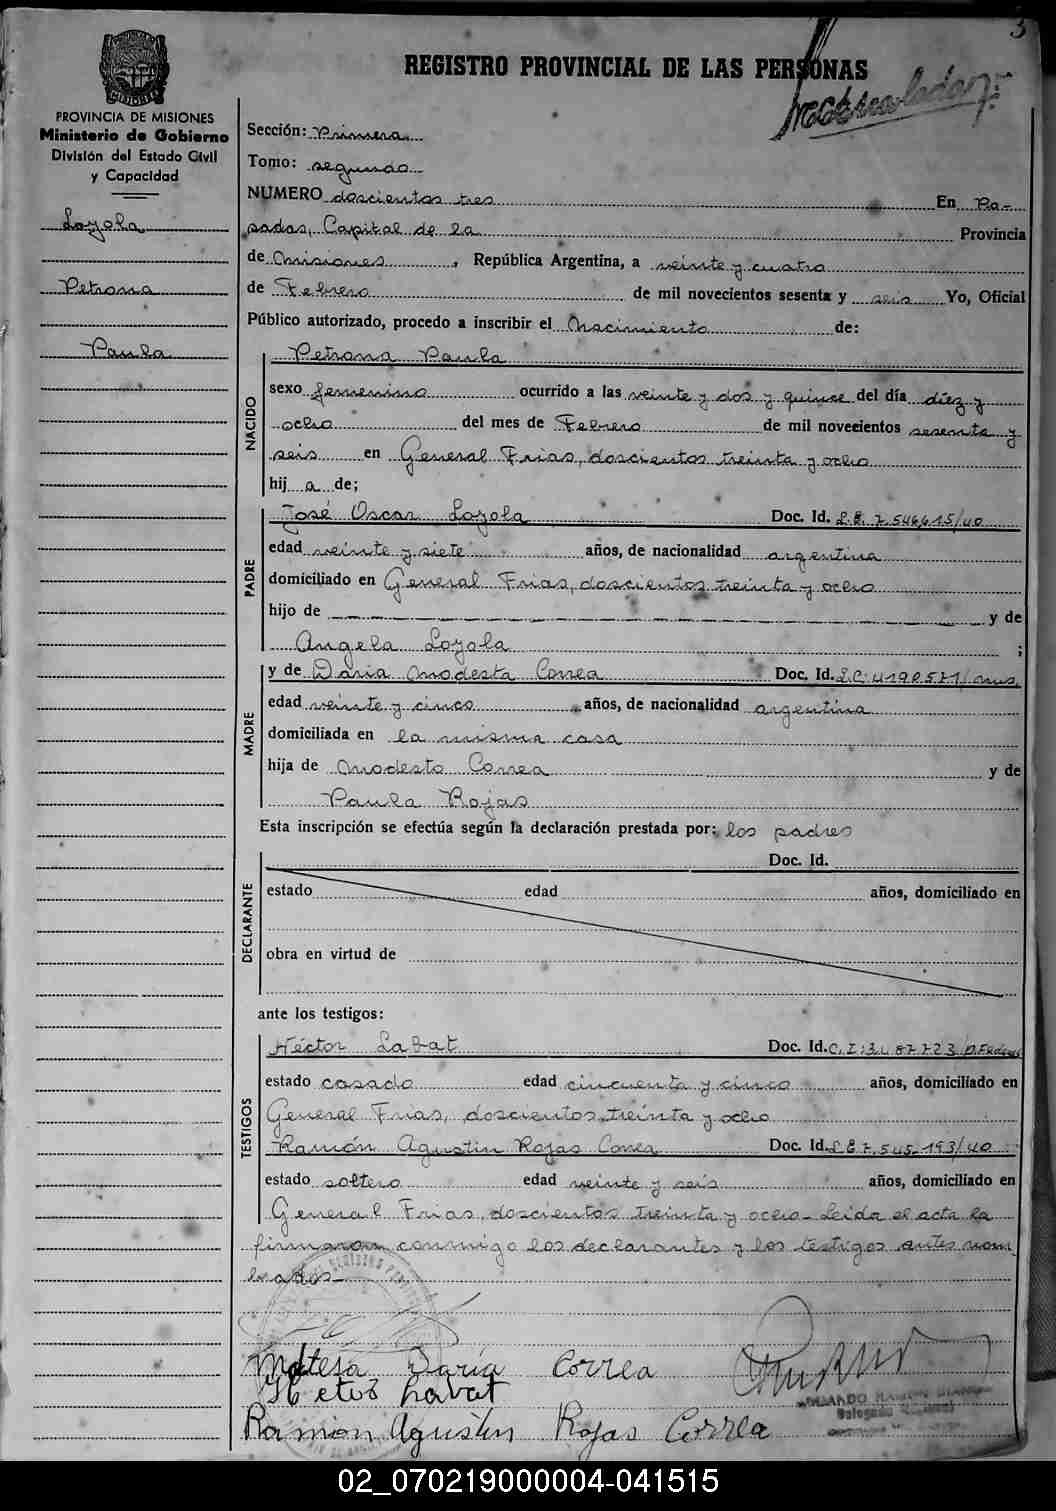 REGISTRO PROVINCIAL DE LAS PERSONAS
PROVINCIA DE MISIONES
Ministerio de Gobierno
División del Estado Civil
y Capacidad
Loyola
Petrona
Paula
Sección: Primera
Tomo: segundo
NUMERO doscientos tres En Po-
sadas, Capital de la Provincia
de Misiones, República Argentina, a veinte y cuatro
de Febrero de mil novecientos sesenta y seis Yo, Oficial
Público autorizado, procedo a inscribir el Nacimiento de:
NACIDO
Petrona Paula
sexo femenino ocurrido a las veinte y dos y quince del día diez y
ocho del mes de Febrero de mil novecientos sesenta y
seis en General Frias, doscientos treinta y ocho
hij a de;
PADRE
José Oscar Loyola Doc. Id. L.E. 7.546.415/40
edad veinte y siete años, de nacionalidad argentina
domiciliado en General Frias, doscientos treinta y ocho
hijo de y de
Angela Loyola ;
MADRE
y de Daria Modesta Correa Doc. Id. L.C: 4190571/mis.
edad veinte y cinco años, de nacionalidad argentina
domiciliada en la misma casa
hija de Modesto Correa y de
Paula Rojas
Esta inscripción se efectúa según la declaración prestada por: los padres
DECLARANTE
Doc. Id.
estado edad años, domiciliado en
obra en virtud de
ante los testigos:
TESTIGOS
Héctor Labat Doc. Id. C.I:3.487.723 p.Federal
estado casado edad cincuenta y cinco años, domiciliado en
General Frias, doscientos treinta y ocho
Ramón Agustin Rojas Correa Doc. Id. L.E 7.545.193/40
estado soltero edad veinte y seis años, domiciliado en
General Frias, doscientos treinta y ocho- Leida el acta la
firmaron conmigo los declarantes y los testigos antes nom-
brados-
Daría Correa
Labat
Ramón Agustin Rojas Correa
02_070219000004-041515